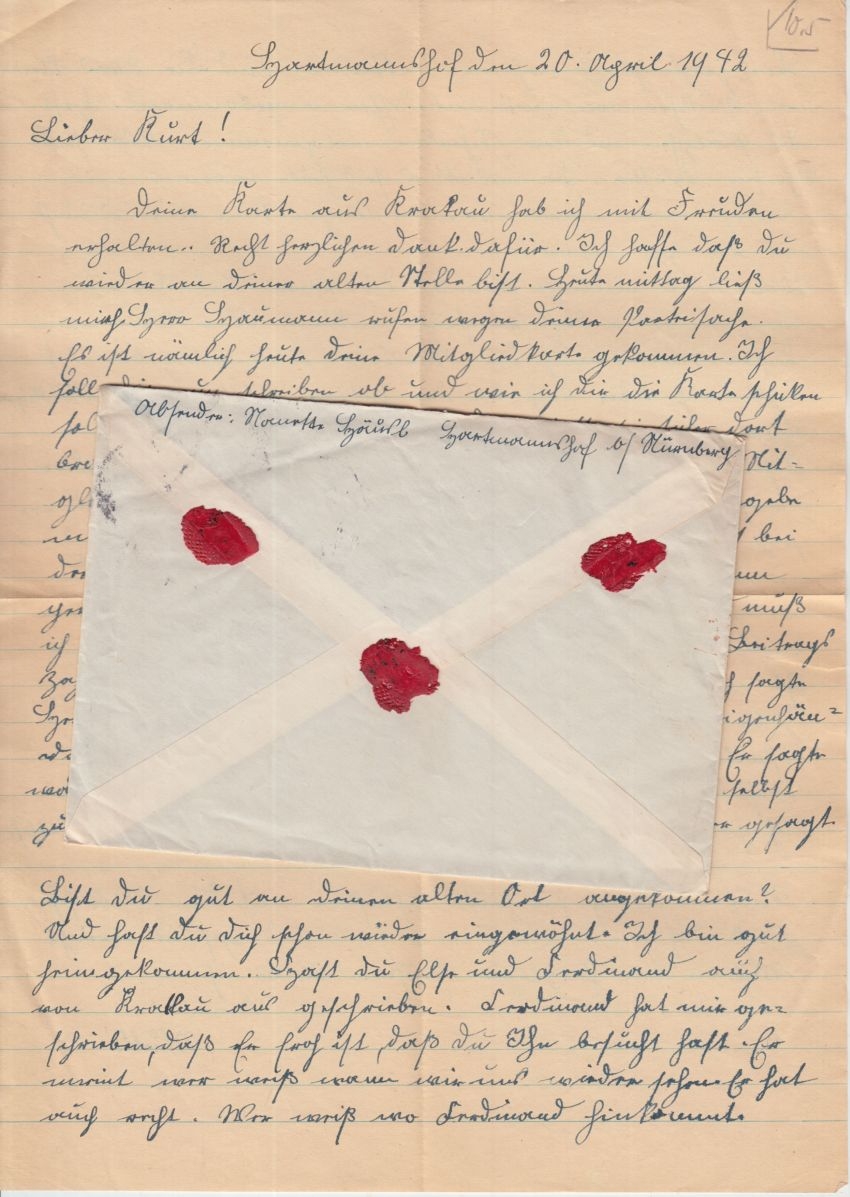 10,5
Hartmannshof den 20. April 1942
Lieber Kurt!
Deine Karte aus Krakau hab ich mit Freuden
erhalten.. Recht herzlichen dank dafür. Ich hoffe daß du
wieder an deiner alten Stelle bist. Heute mittag ließ
mich Herr Haumann rufen wegen deiner Parteisache.
Es ist nämlich heute deine Mitgliedkarte gekommen. Ich
soll schreiben ob und wie ich dir die Karte schicken
sol dort
Mit=
gl gebe
bei
muß
ich Beitrags
sagte
igenhän=
Er sagte
selbst
zu er gesagt.
Absender: Nanette Häusl Hartmannshof b/ Nürnberg
Bist du gut an deinen alten Ort angekommen?
Und hast du dich schon wieder eingewöhnt. Ich bin gut
heimgekommen. Hast du Else und Ferdinand auch
von Krakau aus geschrieben. Ferdinand hat mir ge=
schrieben, daß Er froh ist, daß du Ihn besucht hast. Er
meint wer weiß wann wir uns wieder sehen. Er hat
auch recht. Wer weiß wo Ferdinand hinkommt.